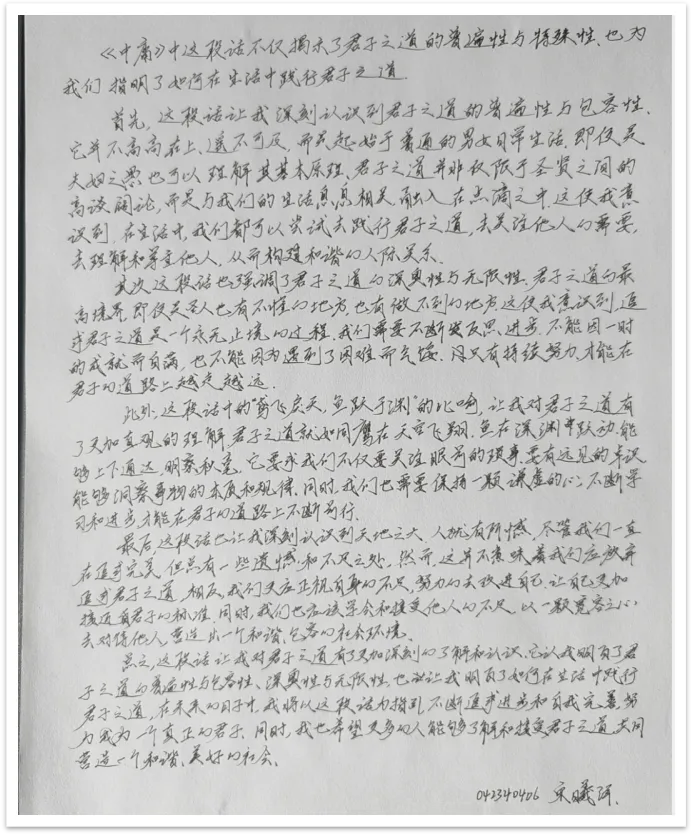 《中庸》中这段话不仅揭示了君子之道的普遍性与特殊性、也为
我们指明了如何在生活中践行君子之道.
首先，这段话让我深刻认识到君子之道的普遍性与包容性、
它并不高高在上、遥不可及，而是起始于普通的男女日常生活.即使是
夫妇之愚也可以理解其基本原理、君子之道并非仅限于圣贤之间的
高谈阔论，而是与我们的生活息息相关融入在点滴之中.这使我意
识到，在生活中，我们都可以尝试去践行君子之道，去关注他人的需要，
去理解和尊重他人，从而构建和谐的人际关系.
其次这段话也强调了君子之道的深奥性与无限性.君子之道的最
高境界，即使是圣人也有不懂的地方，也有做不到的地方这使我意识到，追
求君子之道是一个永无止境的过程.我们需要不断反思、进步.不能因一时
的成就而自满，也不能因为遇到了困难而气馁.只有持续努力，才能在
君子的道路上越走越远.
此外，这段话中的"鸢飞戾天，鱼跃于渊"的比喻，让我对君子之道有
了更加直观的理解.君子之道就如同鹰在天空飞翔.鱼在深渊中跃动，能
够上下通达，明察秋毫.它要求我们不仅要关注眼前的琐事，要有远见的卓识
能够洞察事物的本质和规律.同时，我们也需要保持一颗谦虚的心，不断学
习和进步，才能在君子的道路上不断前行.
最后，这段话也让我深刻认识到天地之大、人犹有所憾，尽管我们一直
在追求完美，但总有一些遗憾和不足之处，然而，这并不意味着我们应放弃
追求君子之道，相反，我们更应正视自身的不足，努力的去改进自己.让自己更加
接近君子的标准，同时，我们也应该学会和接受他人的不足，以一颗宽容之心
去对待他人，营造出一个和谐、包容的社会环境.
总之，这段话让我对君子之道有了更加深刻的了解和认识.它让我明白了君
子之道的普遍性与包容性、深奥性与无限性.也让我明白了如何在生活中践行
君子之道，在未来的日子中，我将以这段话为指引，不断追求进步和自我完善，努
力成为一个真正的君子.同时，我也希望更多的人能够了解和接受君子之道，共同
营造一个和谐、美好的社会.
042340406 宋曦